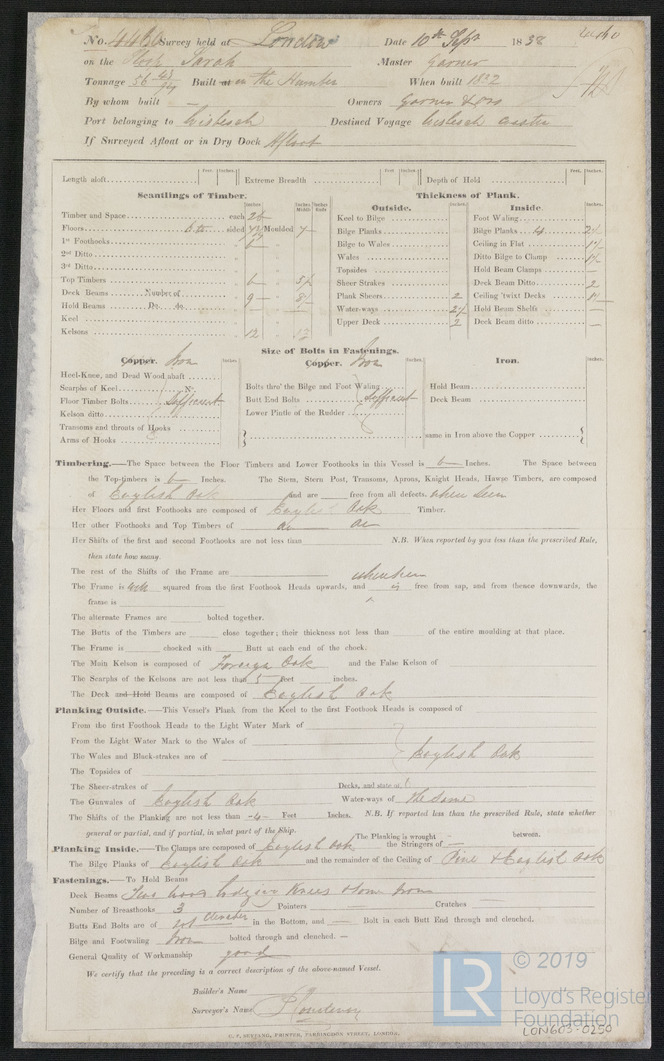 No. 4460 Survey held at London Date 10th Sepr 1838
on the Sloop Sarah Master Garner
Tonnage 56 Built at in the Humber When built 1832
By whom built — Owners Garner & Co
Port belonging to Wisbech Destined Voyage Wisbech Coaster
If Surveyed Afloat or in Dry Dock Afloat
Length aloft Feet. Inches. Extreme Breadth Feet. Inches. Depth of Hold Feet. Inches.
Scantlings of Timber. Thickness of Plank.
Inches Inches Middle Inches Ends Outside. Inches. Inside. Inches.
Timber and Space each Keel to Bilge Foot Waling
Floors sided Moulded 7 Bilge Planks Bilge Planks
1st Foothooks 6 Bilge to Wales Ceiling in Flat
2nd Ditto Wales Ditto Bilge to Clamp
3rd Ditto Topsides Hold Beam Clamps —
Top Timbers 6 Sheer Strakes Deck Beam Ditto 2
Deck Beams Number of 9 Plank Sheers 2 Ceiling 'twixt Decks
Hold Beams Do. do. Water-ways Hold Beam Shelfs —
Keel Upper Deck 2 Deck Beam ditto —
Kelsons 12 12
Size of Bolts in Fastenings.
Copper. Iron Inches. Copper. Iron Inches. Iron. Inches.
Heel-Knee, and Dead Wood abaft
Scarphs of Keel N. Bolts thro' the Bilge and Foot Waling Hold Beam
Floor Timber Bolts Sufficient Butt End Bolts Sufficient Deck Beam
Kelson ditto Lower Pintle of the Rudder
Transoms and throats of Hooks
Arms of Hooks same in Iron above the Copper
Timbering.—The Space between the Floor Timbers and Lower Foothooks in this Vessel is 6 Inches. The Space between
the Top-timbers is 6 Inches. The Stem, Stern Post, Transoms, Aprons, Knight Heads, Hawse Timbers, are composed
of English Oak and are free from all defects. when seen
Her Floors and first Foothooks are composed of English Oak Timber.
Her other Foothooks and Top Timbers of do do
Her Shifts of the first and second Foothooks are not less than N.B. When reported by you less than the prescribed Rule,
then state how many.
The rest of the Shifts of the Frame are when seen
The Frame is well squared from the first Foothook Heads upwards, and is free from sap, and from thence downwards, the
frame is
The alternate Frames are bolted together.
The Butts of the Timbers are close together; their thickness not less than of the entire moulding at that place.
The Frame is chocked with Butt at each end of the chock.
The Main Kelson is composed of Foreign Oak and the False Kelson of
The Scarphs of the Kelsons are not less than 5 feet inches.
The Deck and Hold Beams are composed of English Oak
Planking Outside.—This Vessel's Plank from the Keel to the first Foothook Heads is composed of
From the first Foothook Heads to the Light Water Mark of
From the Light Water Mark to the Wales of
The Wales and Black-strakes are of English Oak
The Topsides of
The Sheer-strakes of Decks, and state of
The Gunwales of English Oak Water-ways of the Same
The Shifts of the Planking are not less than -4- Feet Inches. N.B. If reported less than the prescribed Rule, state whether
general or partial, and if partial, in what part of the Ship. The Planking is wrought — between.
Planking Inside.—The Clamps are composed of English Oak the Stringers of —
The Bilge Planks of English Oak and the remainder of the Ceiling of Pine & English Oak
Fastenings.—To Hold Beams
Deck Beams Two Wood lodging Knees & some Iron
Number of Breasthooks 3 Pointers — Crutches —
Butts End Bolts are of not Clenched in the Bottom, and — Bolt in each Butt End through and clenched.
Bilge and Footwaling Iron bolted through and clenched. —
General Quality of Workmanship good
We certify that the preceding is a correct description of the above-named Vessel.
Builder's Name
Surveyor's Name
PRINTER, FARRINGDON STREET, LONDON.
© 2019
LR
Lloyd's Register
Foundation
LON603-0250